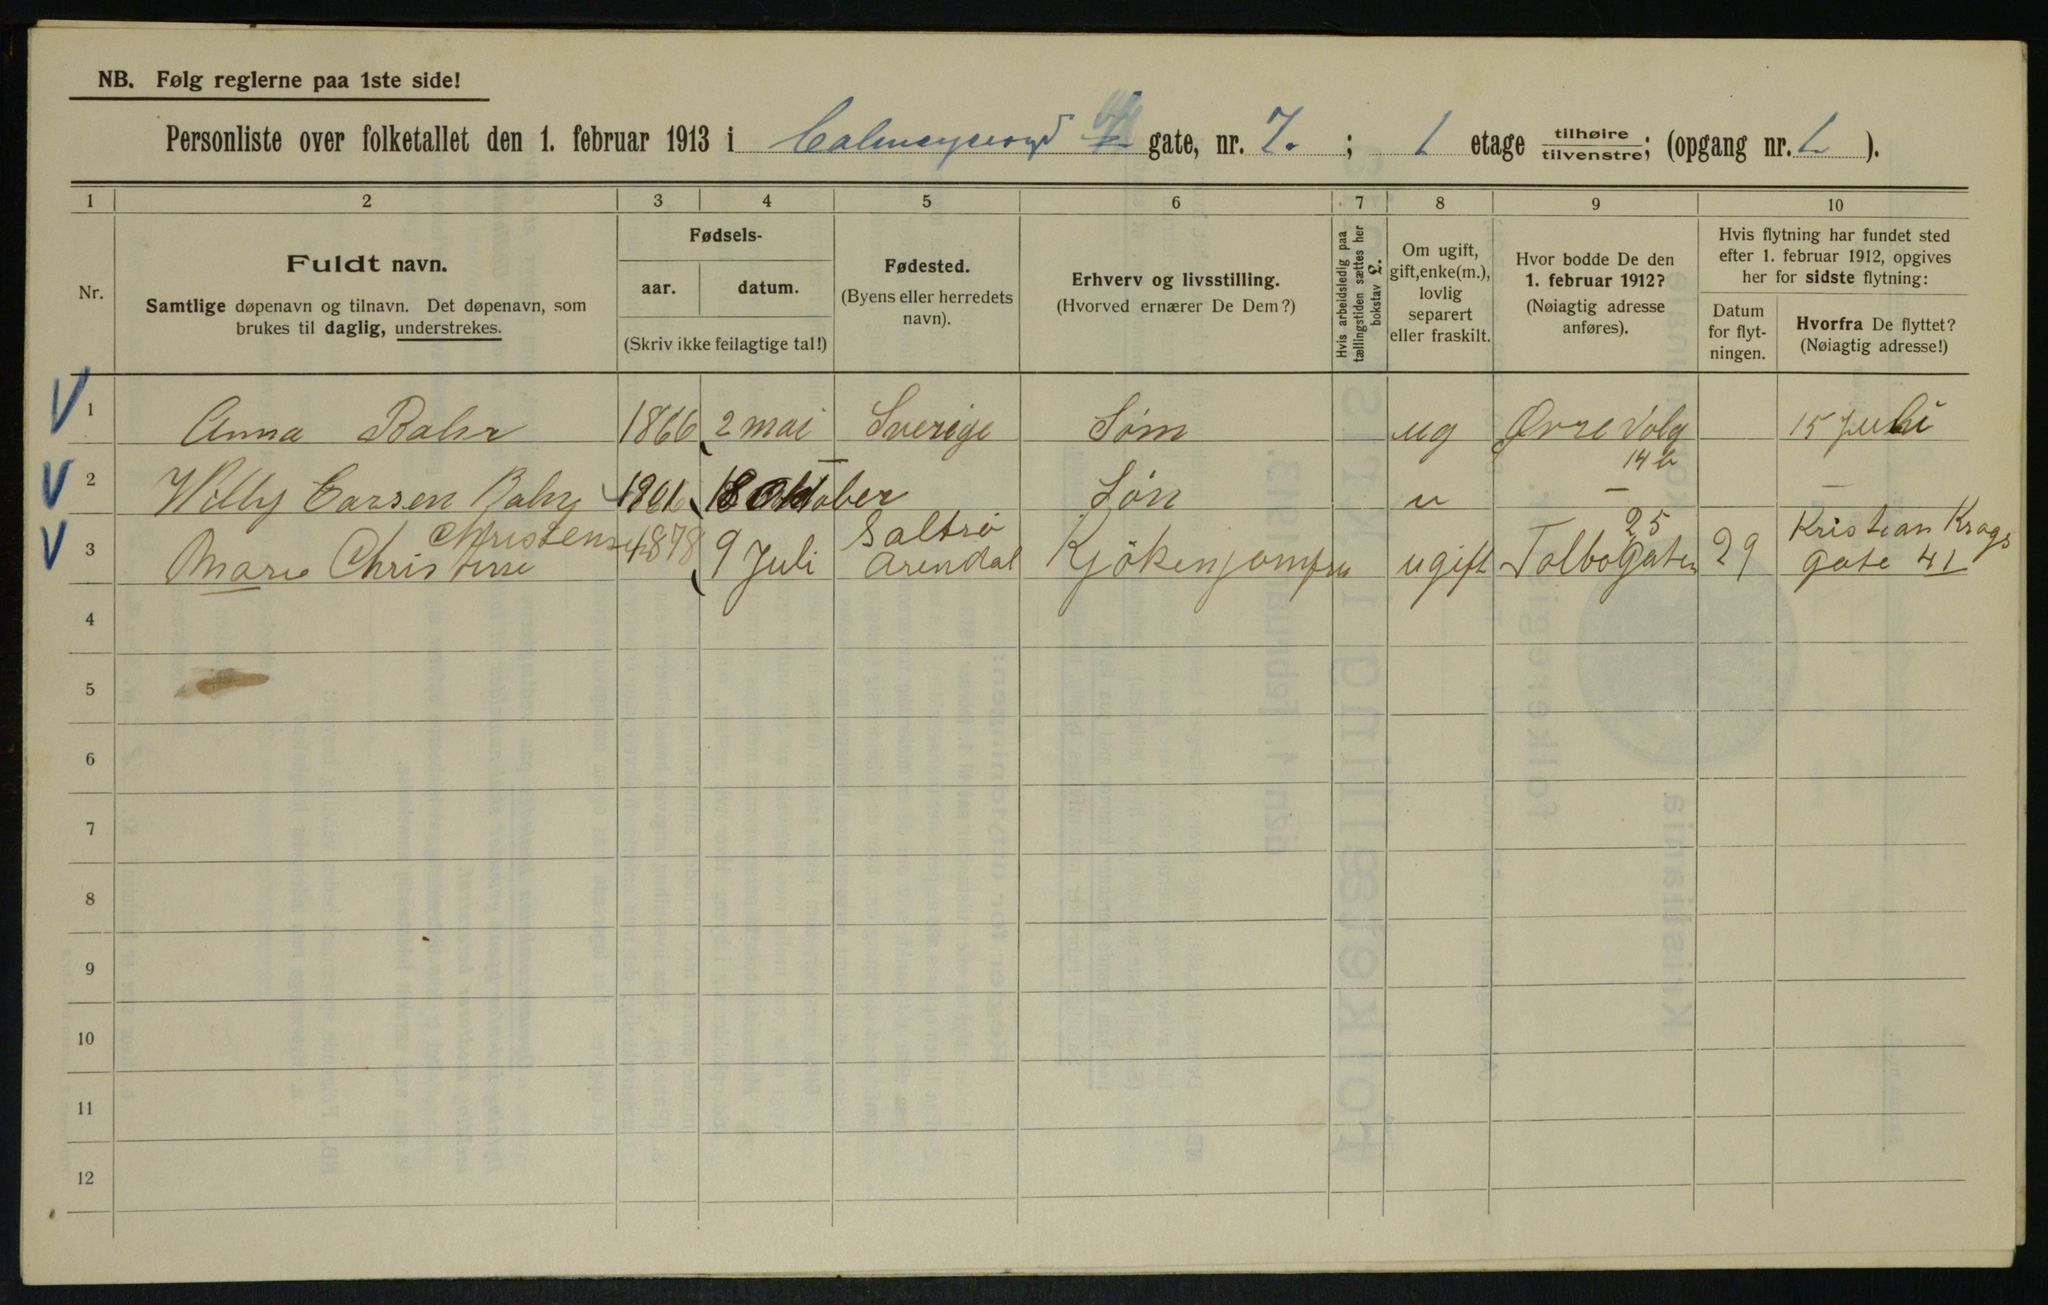 NB. Følg reglerne paa 1ste side!
Personliste over folketallet den 1. februar 1913 i Calmeyers gate, nr. 7. ; 1 etage tilhøire tilvenstre; (opgang nr. 1 ).
1 2 3 4 5 6 7 8 9 10
Nr.
Fuldt navn.
Samtlige døpenavn og tilnavn. Det døpenavn, som
brukes til daglig, understrekes.
Fødsels-
aar. datum.
(Skriv ikke feilagtige tal!)
Fødested.
(Byens eller herredets
navn).
Erhverv og livsstilling.
(Hvorved ernærer De Dem?)
Hvis arbeidsledig paa
tællingstiden sættes her
bokstav L.
Om ugift,
gift, enke(m.),
lovlig
separert
eller fraskilt.
Hvor bodde De den
1. februar 1912?
(Nøiagtig adresse
anføres).
Hvis flytning har fundet sted
efter 1. februar 1912, opgives
her for sidste flytning:
Datum
for flyt-
ningen.
Hvorfra De flyttet?
(Nøiagtig adresse!)
V 1 Anna Bahr 1866 2 mai Sverige Søm ug Øvre Volg 14 b 15 Juli
V 2 Willy Carsen Bahr 1901 18 Oktober Søn u — —
V 3 Marie Christine Christens 1878 9 Juli Saltrø Arendal Kjökenjomfru ugift Tolbogaten 25 29 Kristian Krogs gate 41
4
5
6
7
8
9
10
11
12